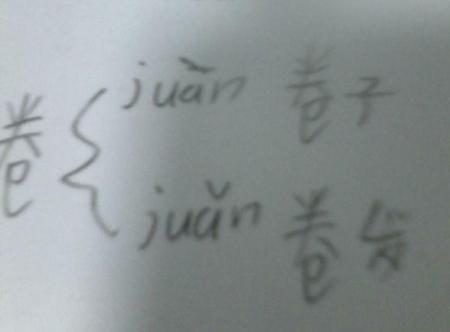 juàn 卷子
卷
juǎn 卷